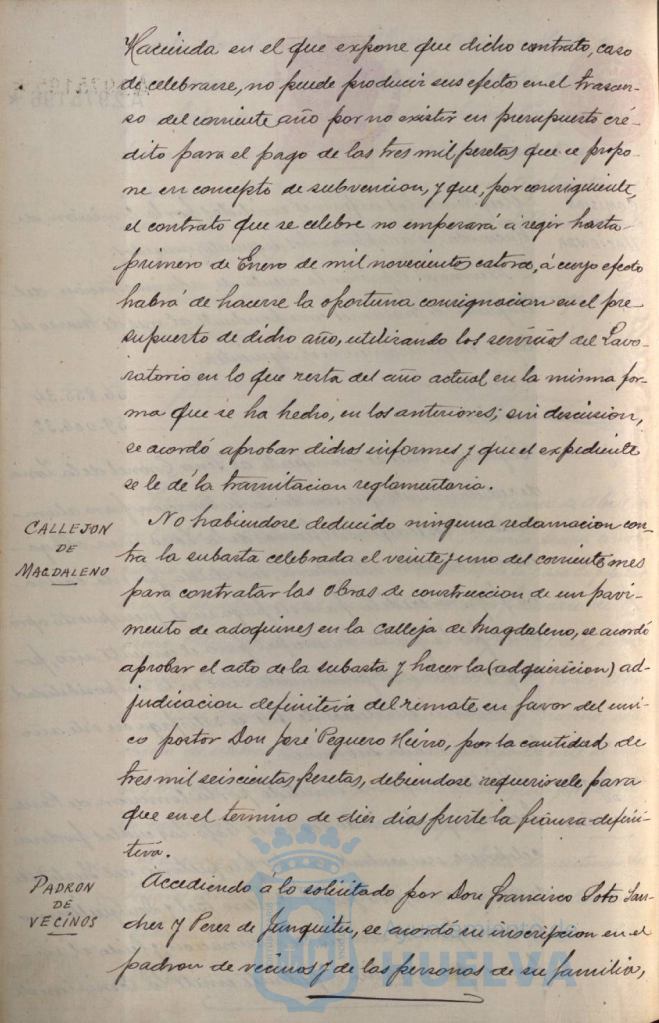 Hacienda en el que expone que dicho contrato, caso
de celebrarse, no puede producir sus efecto en el trascur-
so del corriente año por no existir en presupuesto cré-
dito para el pago de las tres mil pesetas que se propo-
ne en concepto de subvencion, y que, por consiguiente,
el contrato que se celebre no empezará á regir hasta
primero de Enero de mil novecientos catorce, á cuyo efecto
habrá de hacerse la oportuna consignacion en el pre-
supuesto de dicho año, utilizando los servicios del Lavo-
ratorio en lo que resta del año actual en la misma for-
ma que se ha hecho, en los anteriores; sin discusion,
se acordó aprobar dichos informes y que el expediente
se le dé la tramitacion reglamentaria.
CALLEJON
DE
MAGDALENO
No habiendose deducido ninguna reclamacion con-
tra la subasta celebrada el veinte y uno del corriente mes
para contratar las obras de construccion de un pavi-
mento de adoquines en la Calleja de Magdaleno, se acordó
aprobar el acto de la subasta y hacer la (adquisicion) ad-
judicacion definitiva del remate en favor del uni-
co postor Don José Peguero Hierro, por la cantidad de
tres mil seiscientas pesetas, debiendose requerirsele para
que en el termino de diez días preste la fianza defini-
tiva.
PADRON
DE
VECINOS
Accediendo á lo solicitado por Don Francisco Soto San-
chez y Perez de Junquitu, se acordó su inscripcion en el
padron de vecinos y de las personas de su familia,
Ayuntamiento de
HUELVA